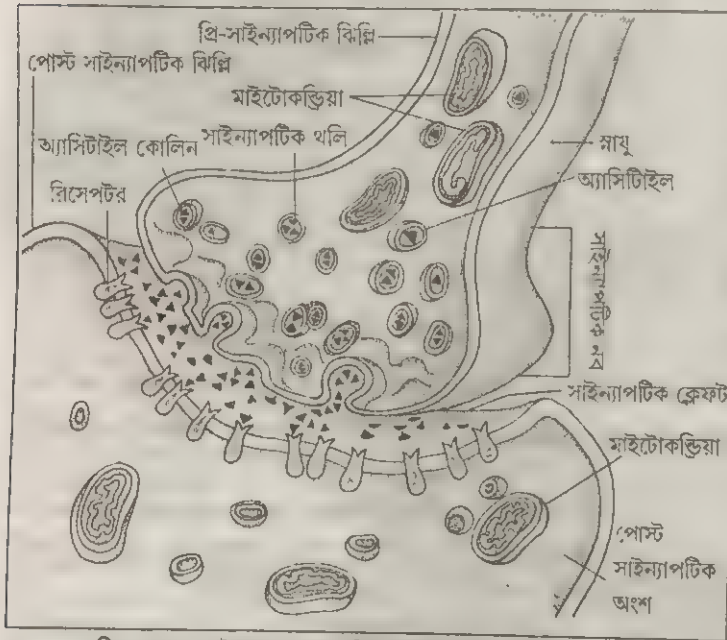 প্রি-সাইন্যাপটিক ঝিল্লি
পোস্ট সাইন্যাপটিক ঝিল্লি
মাইটোকন্ড্রিয়া
অ্যাসিটাইল কোলিন
সাইন্যাপটিক থলি
স্নায়ু
রিসেপটর
অ্যাসিটাইল
সাইন্যাপটিক নব
সাইন্যাপটিক ক্লেফট
মাইটোকন্ড্রিয়া
পোস্ট
সাইন্যাপটিক
অংশ